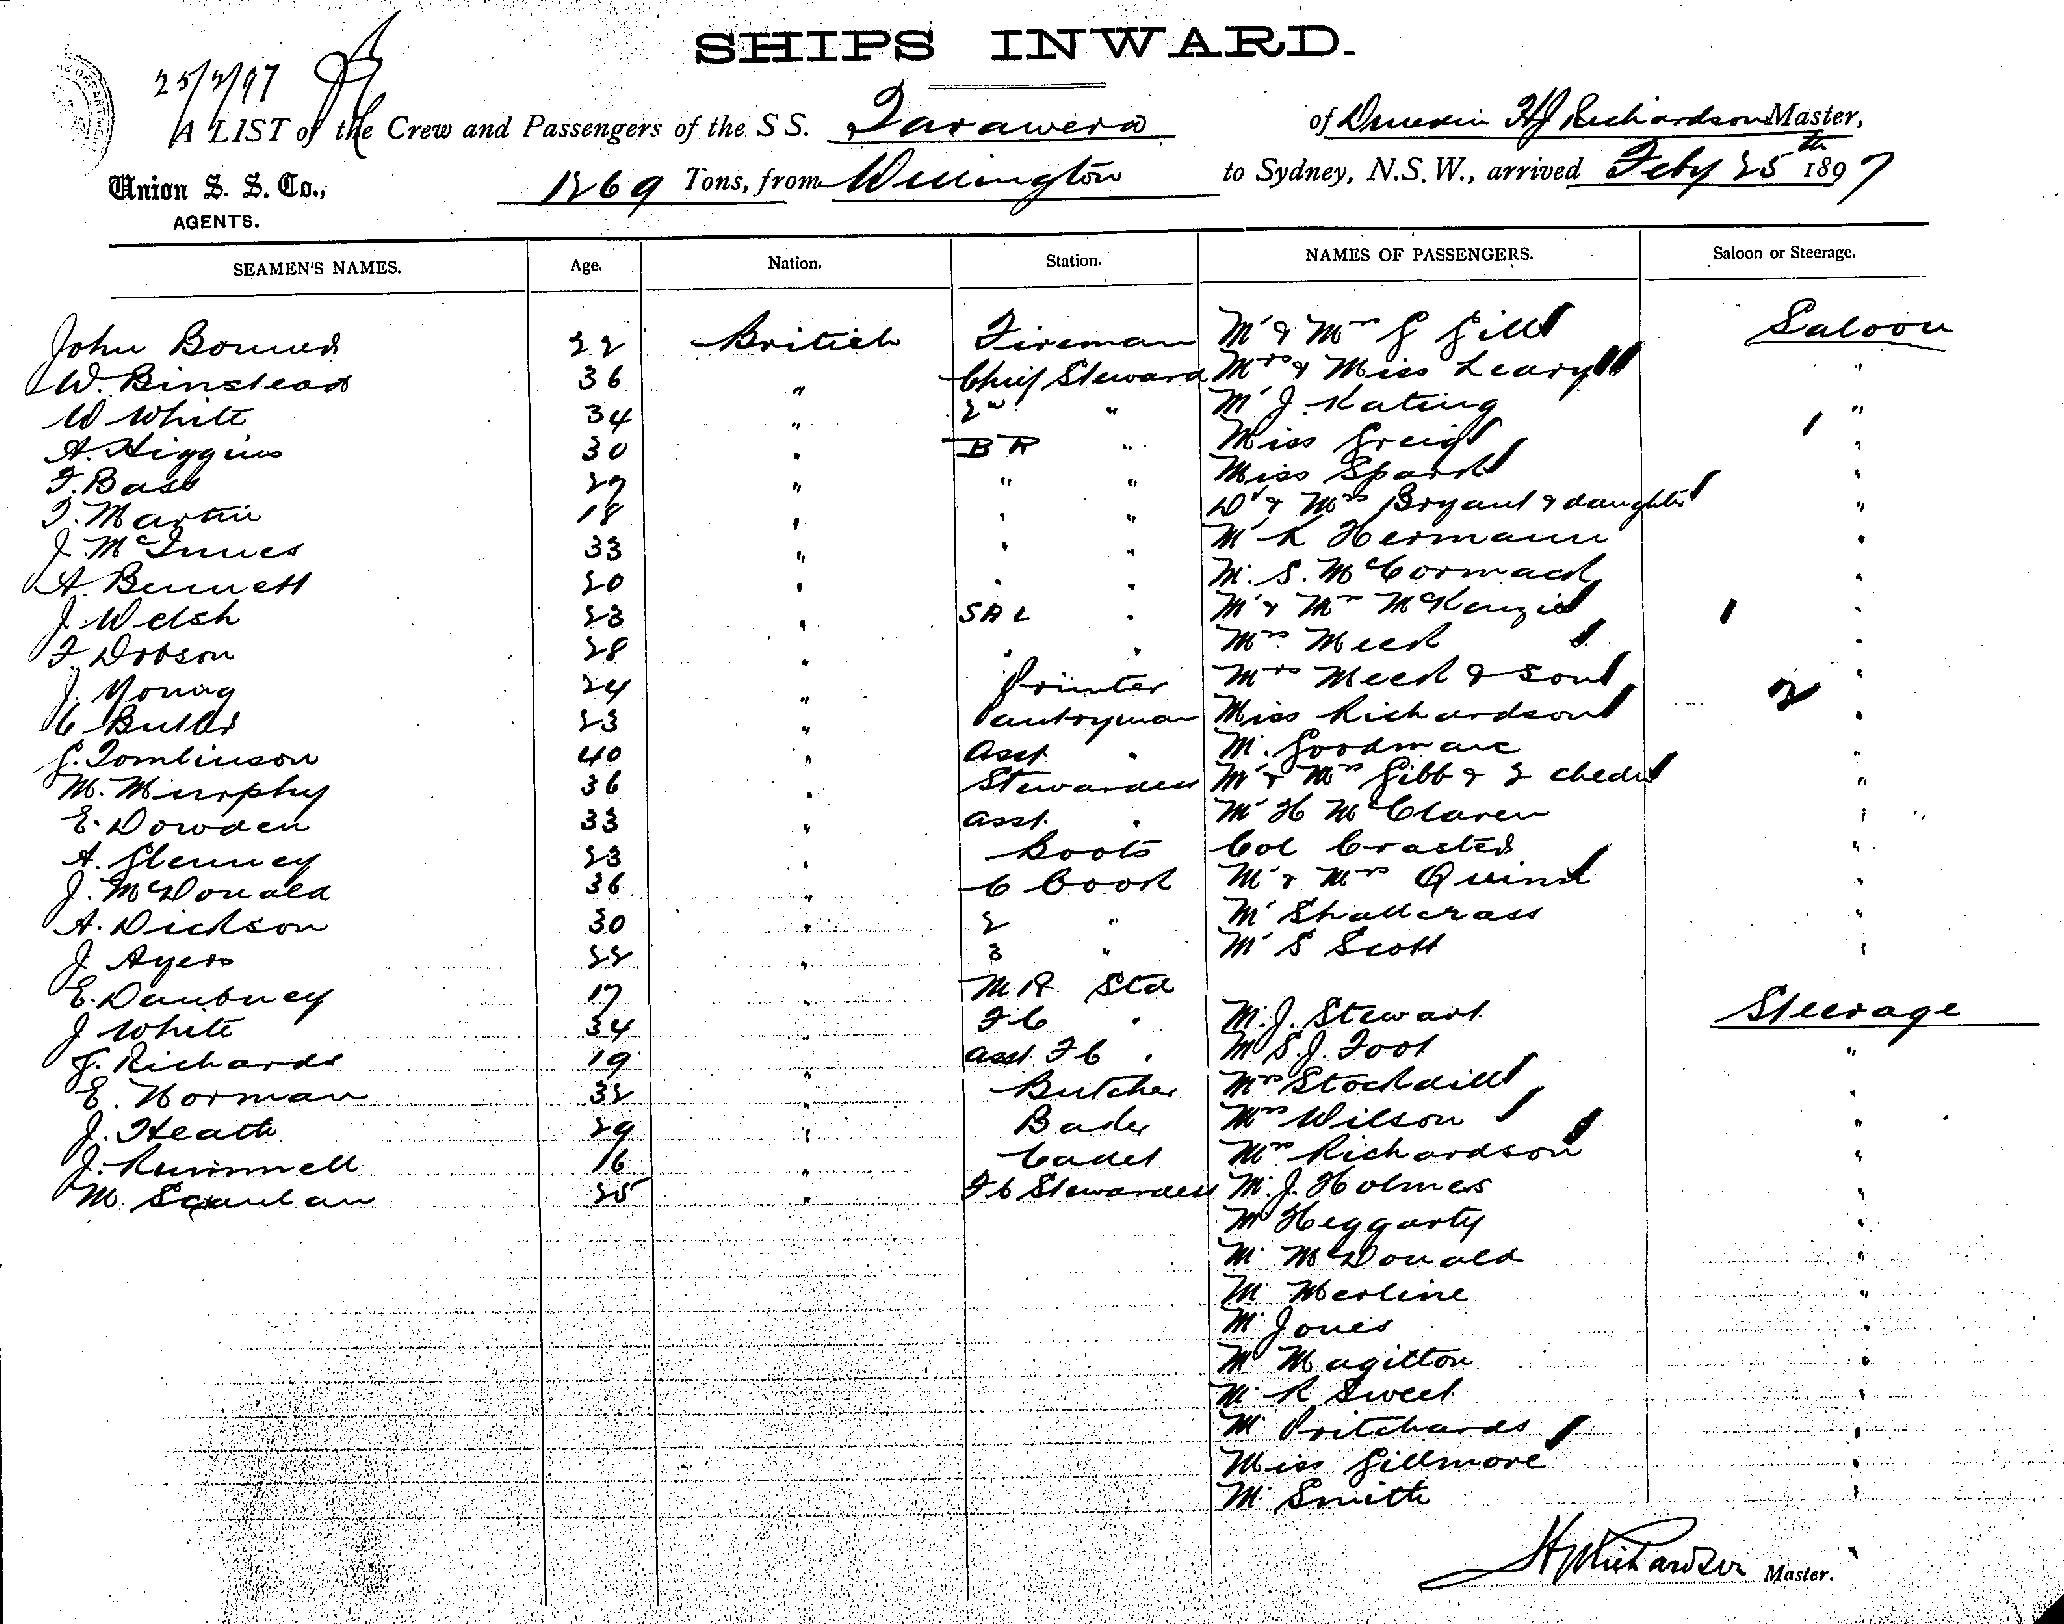 SHIPS INWARD.
25/2/97
A LIST of the Crew and Passengers of the S S. Tarawera of Dunedin HJ Richardson Master,
Union S. S. Co., 1269 Tons, from Wellington to Sydney, N.S.W., arrived Feby 25th 1897
AGENTS.
SEAMEN'S NAMES. Age. Nation. Station. NAMES OF PASSENGERS. Saloon or Steerage.
John Bonner 22 British Fireman Mr & Mrs G Gill Saloon
W. Binstead 36 " Chief Steward Mrs & Miss Leary "
W White 34 " 2nd " Mr J. Kating "
A. Higgins 30 " B R " Miss Greig "
F. Bass 27 " " " Miss Spark "
T. Martin 18 " " " Dr & Mrs Bryant & daughter "
J. McInnes 33 " " " Mr K Hermann "
A. Bennett 20 " " " Mr. S. McCormack "
J Welsh 23 " SAL " Mr & Mrs McKenzie 1 "
F Dobson 28 " " " Mrs Meek "
J. Young 24 " Printer Mrs Meek & Son 2 "
C Butler 23 " Pantryman Miss Richardson "
G. Tomlinson 40 " Asst " Mr. Goodman "
M. Murphy 36 " Stewardess Mr & Mrs Gibb & 2 chedn "
E. Dowden 33 " Asst. " Mr H McClaren "
A. Glenney 23 " Boots Col "
J. McDonald 36 " C Cook Mr & Mrs Quinn "
A. Dickson 30 " 2 " Mr Shallcrass "
J Ayers 22 " 3 " Mr S Scott "
E. Daubney 17 " M R Std
J White 34 " F C " Mr. J. Stewart Steerage
J. Richards 19 " Asst. F C " Mr S. J. Foot "
E. Norman 32 " Butcher Mrs Stockdill "
J. Heath 29 " Baker Mrs Wilson "
J. Rummell 16 " Cadet Mrs Richardson "
M. Scanlan 25 " F C Stewardess Mr. J. Holmes "
Mr Heggarty "
Mr McDonald "
Mr Merline "
Mr Jones "
Mr Magilton "
Mr R Sweet "
Mr Pritchards "
Miss Gillmore "
Mr Smith "
HJ Richardson Master.